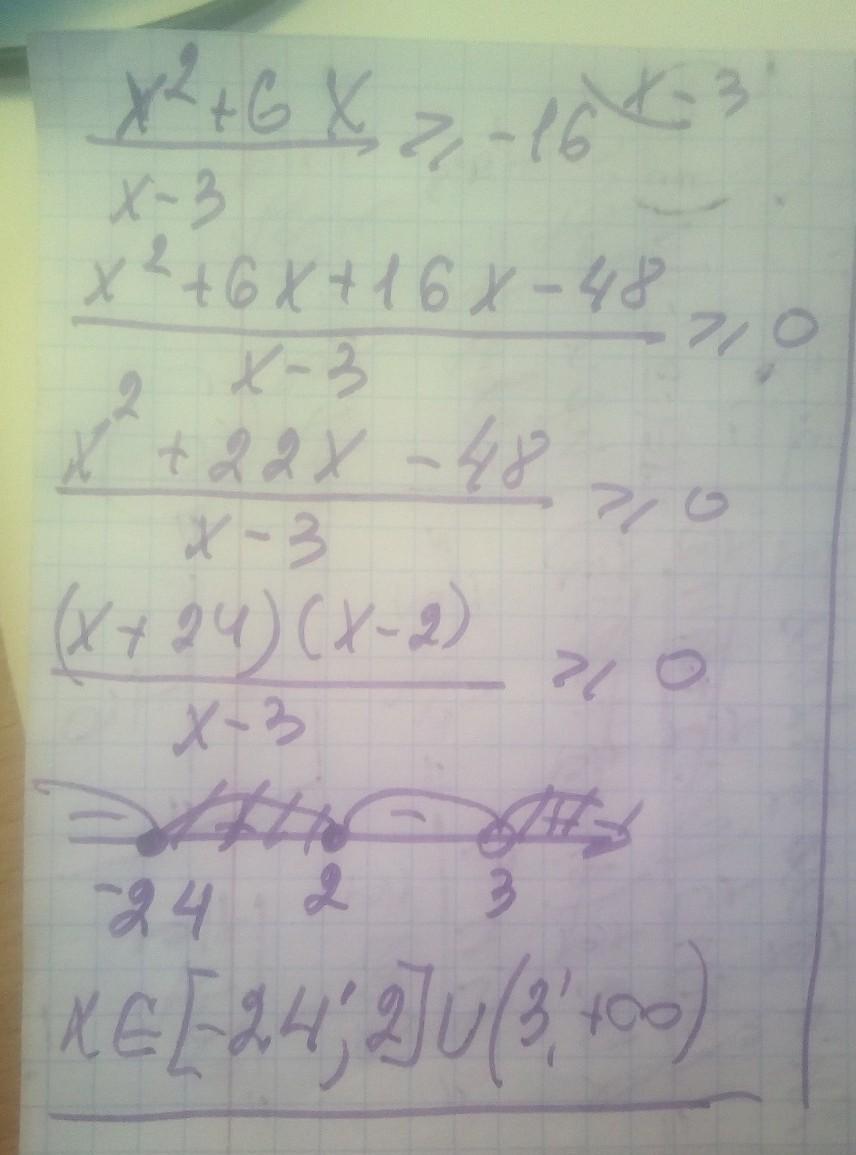 x²+6x
x-3
≥ -16 \x-3
x²+6x+16x-48
x-3
≥ 0
x²+22x-48
x-3
≥ 0
(x+24)(x-2)
x-3
≥ 0
- + - +
-24 2 3
x∈[-24; 2]∪(3; +∞)